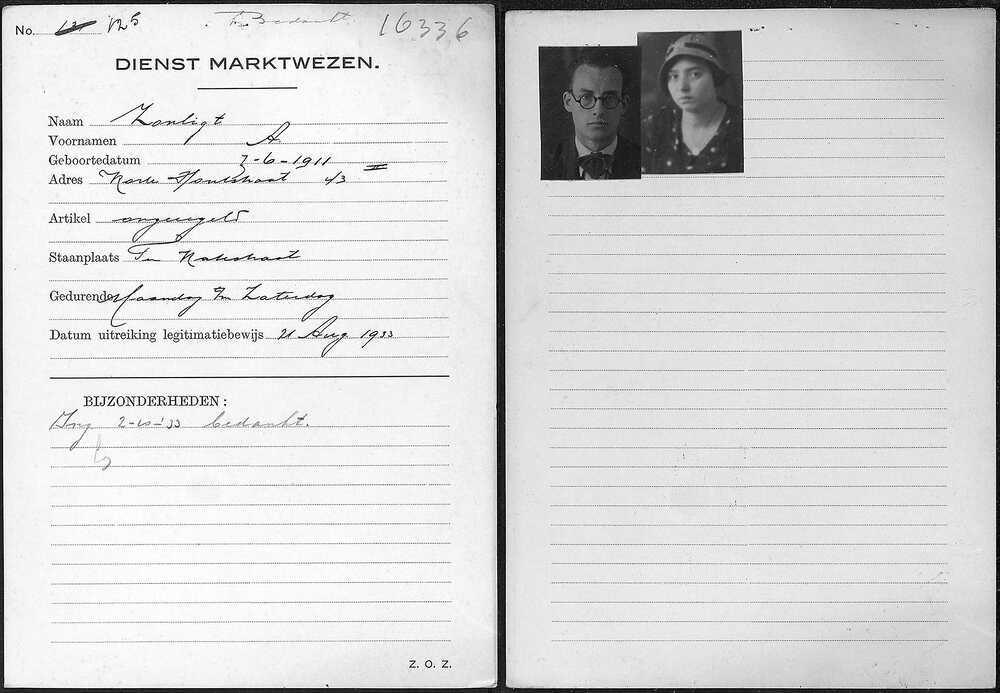 No. 12 125 Bedankt 16336
DIENST MARKTWEZEN.
Naam Zonligt
Voornamen A
Geboortedatum 7-6-1911
Adres Houtstraat 43 II
Artikel ongeregeld
Staanplaats Ten Katestraat
Gedurende Maandag t/m Zaterdag
Datum uitreiking legitimatiebewijs 21 Aug 1933
BIJZONDERHEDEN:
Ing 2-10-'33 bedankt.
Z. O. Z.